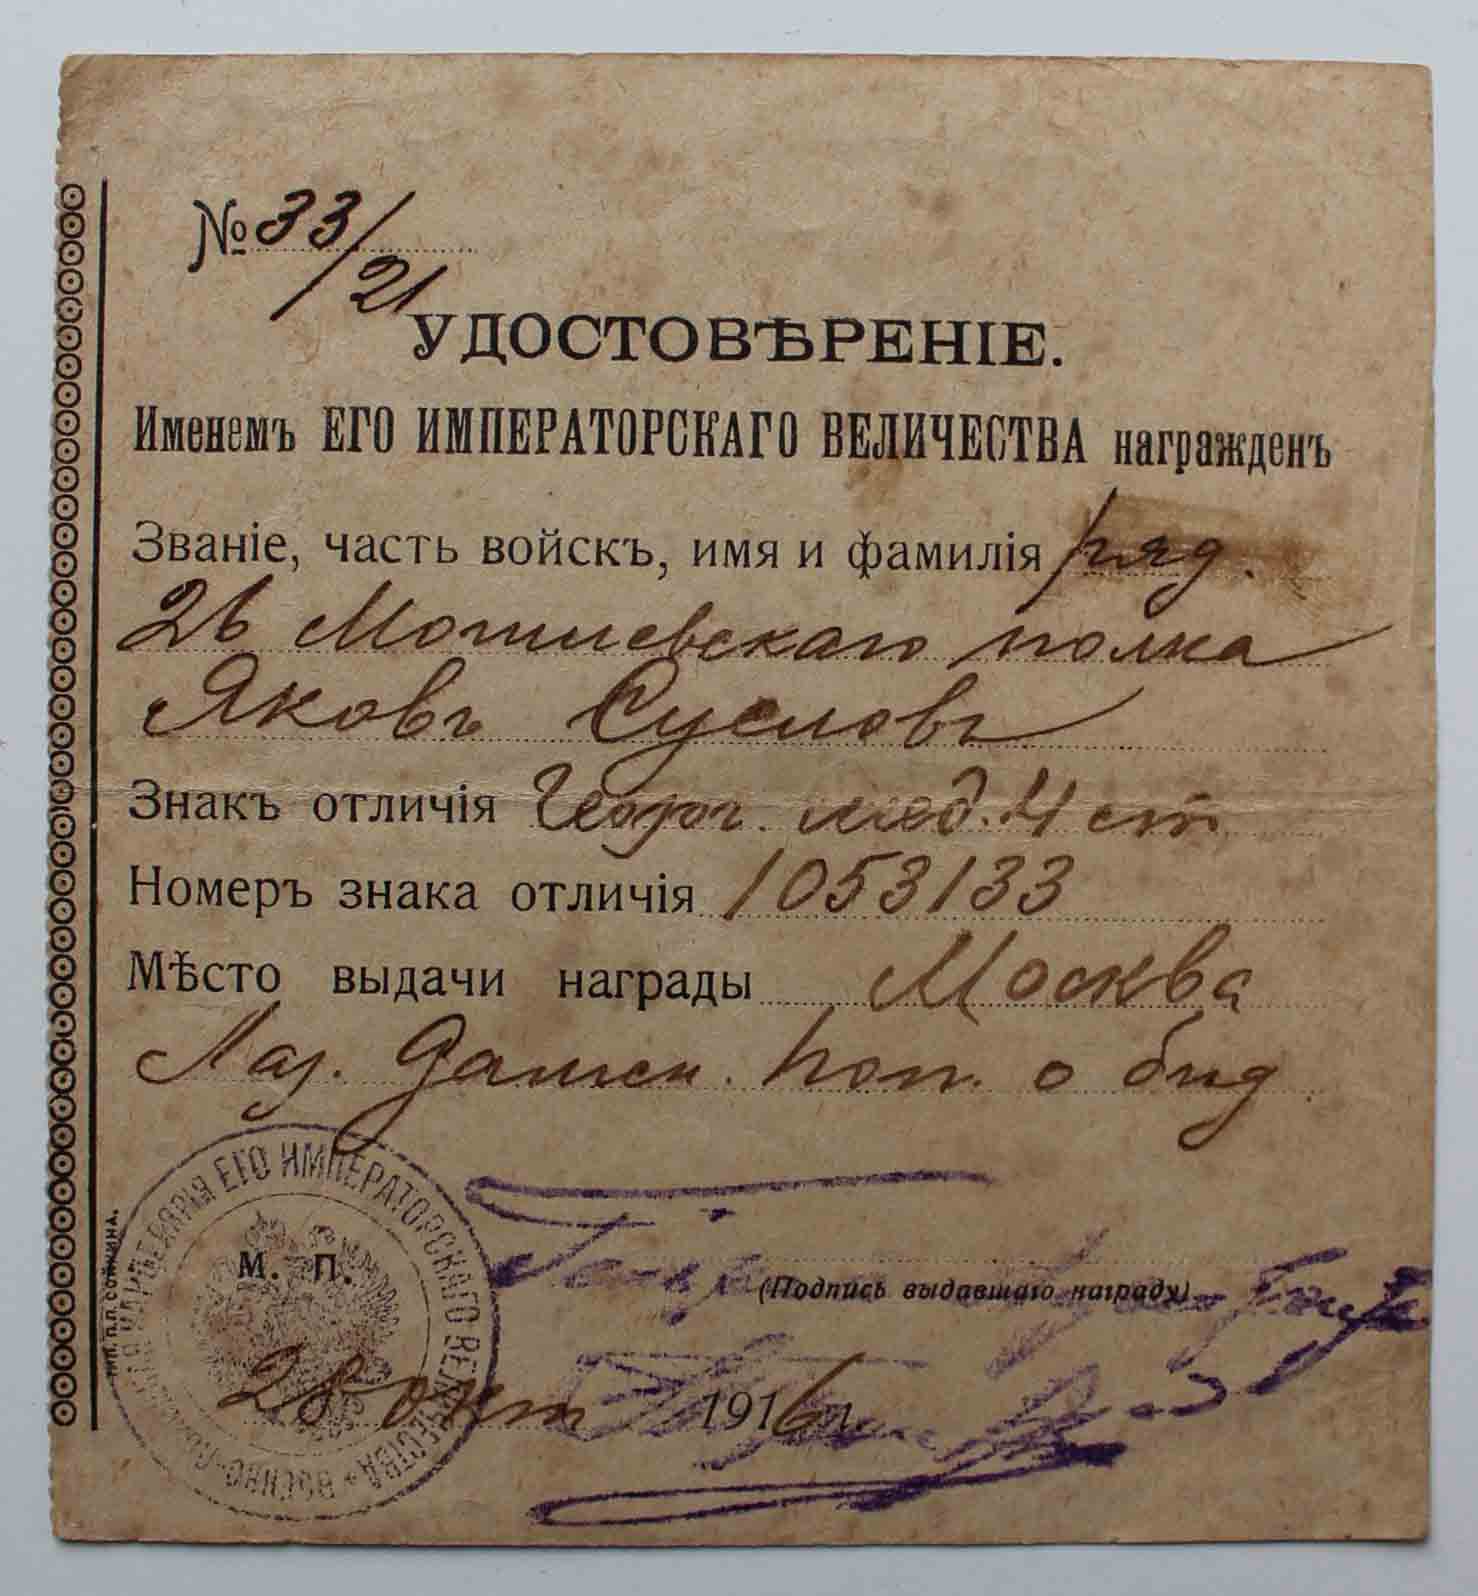 № 33/21
УДОСТОВѢРЕНІЕ.
Именемъ ЕГО ИМПЕРАТОРСКАГО ВЕЛИЧЕСТВА награжденъ
Званіе, часть войскъ, имя и фамилія ряд.
26 Могилевскаго полка
Яковъ Сусловъ
Знакъ отличія Георг. мед. 4 ст
Номеръ знака отличія 1053133
Мѣсто выдачи награды Москва
Лаз. Дамск. Поп. о бѣд
ЕГО ИМПЕРАТОРСКАГО ВЕЛИЧЕСТВА ВОЕННО-ПОХОДНАЯ КАНЦЕЛЯРІЯ
М. П.
(Подпись выдавшаго награду)
28 окт 1916 г.
ТИП. П.П. СОЙКИНА.